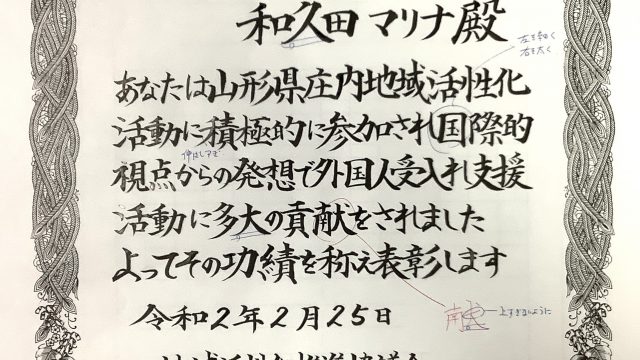 和久田マリナ殿
あなたは山形県庄内地域活性化
活動に積極的に参加され国際的
視点からの発想で外国人受入れ支援
活動に多大の貢献をされました
よってその功績を称え表彰します
令和2年2月25日
左を細く
右を太く
献